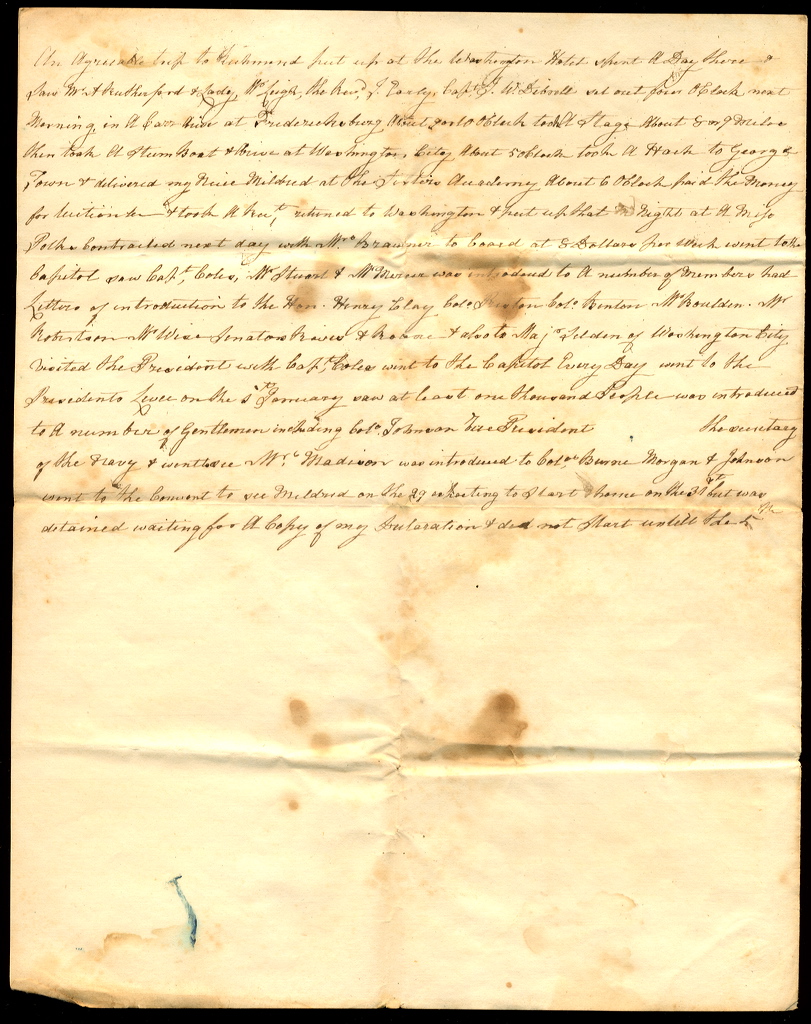 An Agreeable trip to Richmond put up at the Washington Hotel spent A Day there &
Saw Mr A Rutherford & Lady, Mr Leigh, the Revd J. Early, Capt W. Dibrell set out four OClock next
Morning, in A Carr Arive at Fredericksburg About 9 or 10 OClock took A Stage About 8 or 9 Miles
then took A Steam Boat & Arive at Washington, City About 5 oClock took A Hack to George
Town & delivered my Niece Mildred at the Sisters Academy About 6 OClock paid the Money
for tuition &c & took A Rect, returned to Washington & put up that Night at A Miss
Polks Contracted next day with Mrs Brawner to board at 8 Dollars per Week went to the
Capitol saw Capt Coles, Mr Stuart & Mr Mercer was introduced to A number of Members had
Letters of introduction to the Hon. Henry Clay Colo Colo Benton Mr Boulden. Mr
Robertson Mr Wise Senators Rives & Roane & also to Maj Tilden of Washington City
Visited the President with Capt Coles went to the Capitol Every Day went to the
Presidents Levee on the January saw at least one thousand People was introduced
to A number of Gentlemen including Colo Johnson Vice President the secretary
of the Navy & went to see Mrs Madison was introduced to Colos Morgan & Johnson
went to the Convent to see Mildred on the 29 expecting to Start home on the 31st but was
detained waiting for A Copy of my Declaration & did not Start untill the 5th